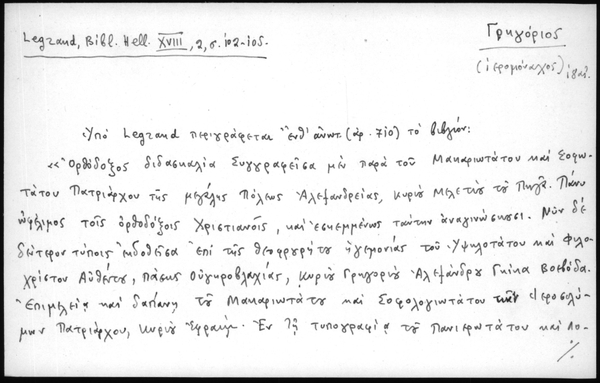 Legrand, Bibl. Hell. XVIII, 2, σ. 102-105.
Γρηγόριος
(ἱερομόναχος)
Ὑπὸ Legrand περιγράφεται ἐνθ' ἀνωτ. (ἀρ. 710) τὸ βιβλίον:
«Ὀρθόδοξος διδασκαλία Συγγραφεῖσα μὲν παρὰ τοῦ Μακαριωτάτου καὶ Σοφω-
τάτου Πατριάρχου τῆς μεγάλης Πόλεως Ἀλεξανδρείας, κυρίου Μελετίου τοῦ Πηγᾶ. Πάνυ
ὠφέλιμος τοῖς ὀρθοδόξοις Χριστιανοῖς, καὶ ἐσκεμμένως ταύτην ἀναγινώσκουσι. Νῦν δὲ
δεύτερον τύποις ἐκδοθεῖσα ἐπὶ τῆς θεοφρουρήτου ἡγεμονίας τοῦ Ὑψηλοτάτου καὶ Φιλο-
χρίστου Αὐθέντου, πάσης Οὐγκροβλαχίας, Κυρίου Γρηγορίου Ἀλεξάνδρου Γκίκα Βοεβόδα.
Ἐπιμελείᾳ καὶ δαπάνῃ τοῦ Μακαριωτάτου καὶ Σοφολογιωτάτου Ἱεροσολύ-
μων Πατριάρχου, κυρίου Ἐφραίμ. Ἐν τῇ τυπογραφίᾳ τοῦ Πανιερωτάτου καὶ Λο-
./.